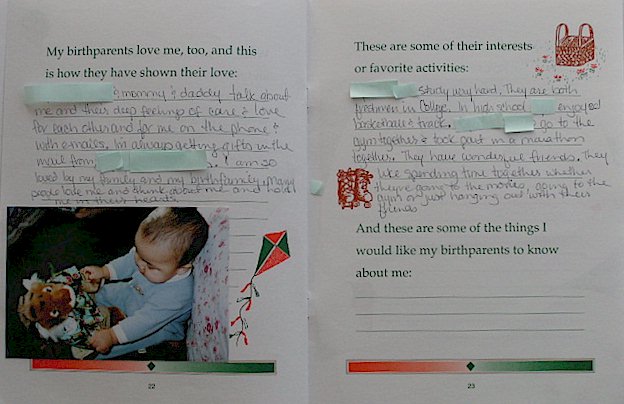 My birthparents love me, too, and this
is how they have shown their love:
& mommy & daddy talk about
me and their deep feelings of care & love
for each other and for me on the phone &
with e-mails. I'm always getting gifts in the
mail from
& I am so
loved by my family and my birthfamily. Many
people love me and think about me and hold
me in their hearts.
22
These are some of their interests
or favorite activities:
study very hard. They are both
freshmen in College. In high school enjoyed
basketball & track. go to the
gym together & took part in a marathon
together. They have wonderful friends. They
like spending time together whether
they're going to the movies, going to the
gym or just hanging out with their
friends
And these are some of the things I
would like my birthparents to know
about me:
23